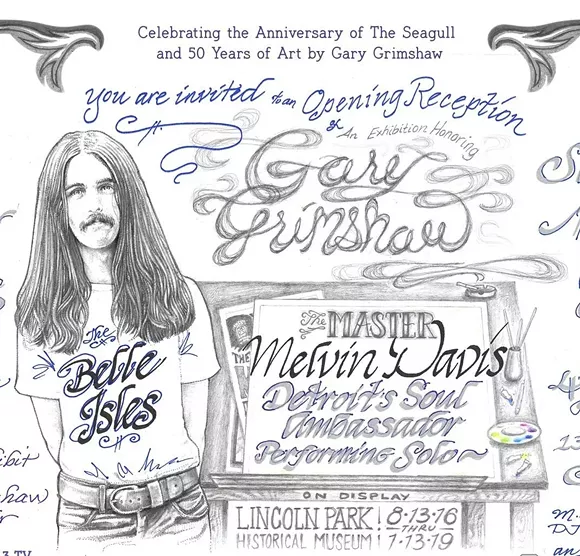 Celebrating the Anniversary of The Seagull
and 50 Years of Art by Gary Grimshaw
You are invited to an Opening Reception
of An Exhibition Honoring
Gary
Grimshaw
The
Belle
Isles
THE
The MASTER
Melvin Davis
Detroit's Soul
Ambassador
Performing Solo~
ON DISPLAY
LINCOLN PARK
HISTORICAL MUSEUM
8·13·16
THRU
1·13·19